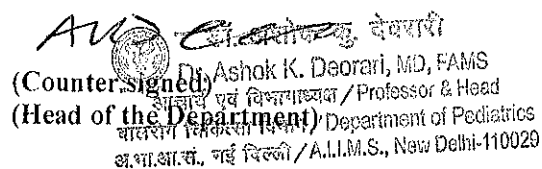 डा. अशोक कु. देवरारी
(Counter signed) Dr. Ashok K. Deorari, MD, FAMS
आचार्य एवं विभागाध्यक्ष / Professor & Head
(Head of the Department) Department of Pediatrics
अ.भा.आ.सं., नई दिल्ली / A.I.I.M.S., New Delhi-110029